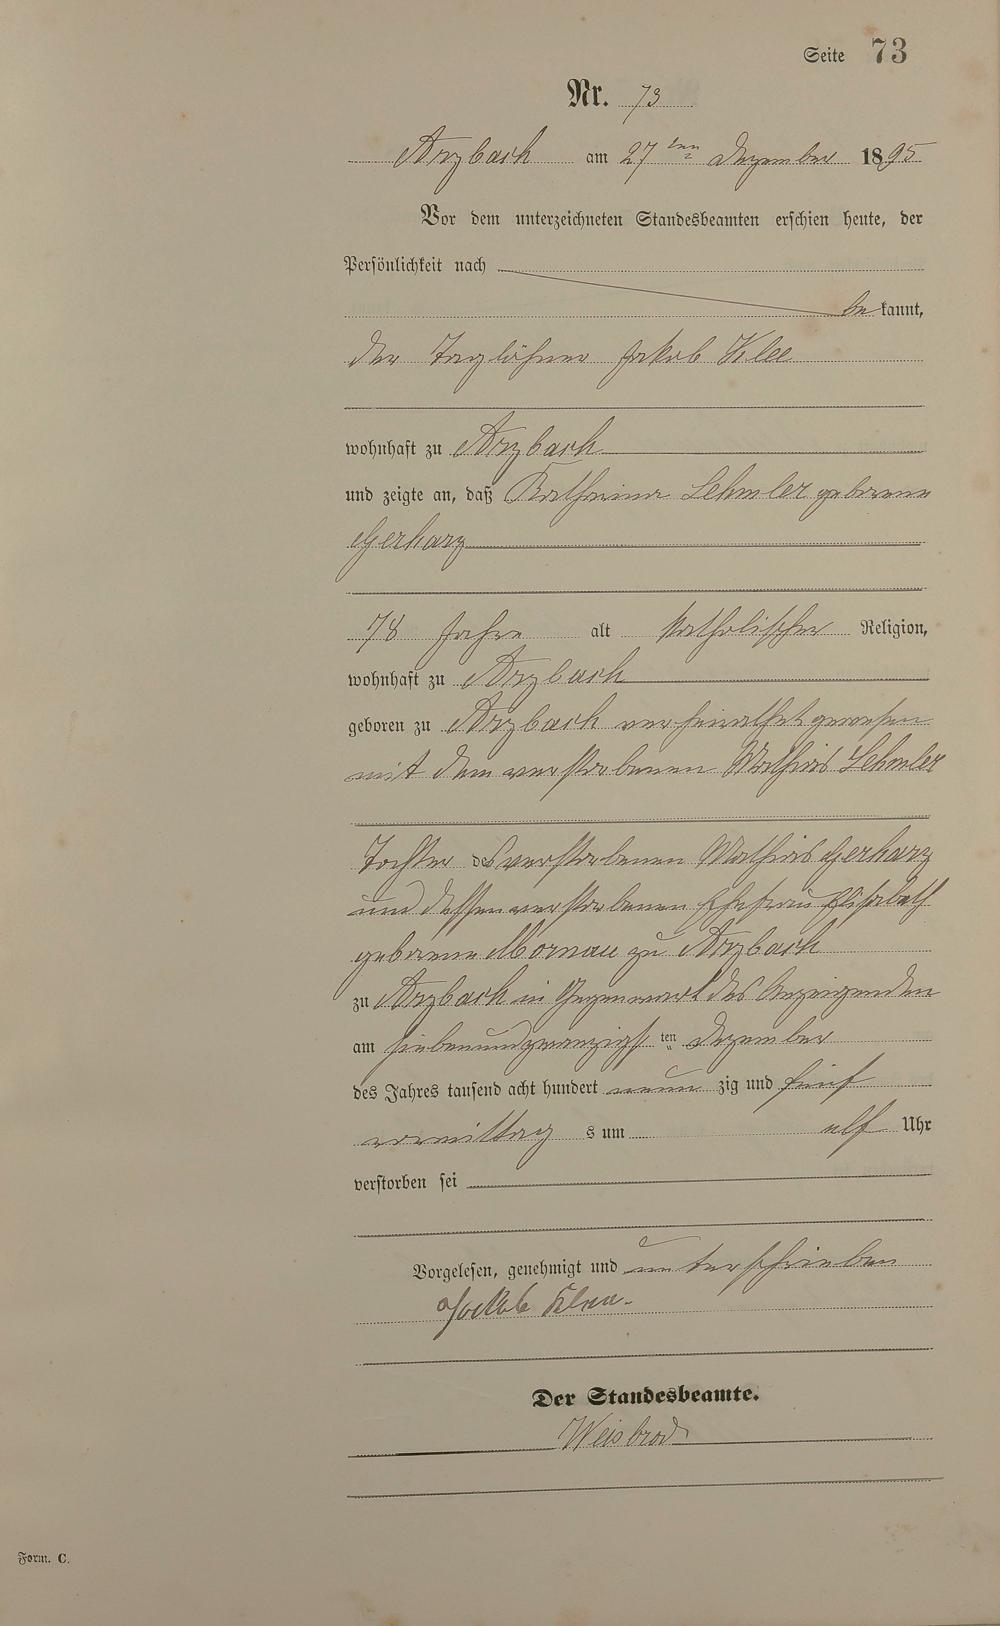 Seite 73
Nr. 73
Arzbach am 27ten Dezember 1895
Vor dem unterzeichneten Standesbeamten erschien heute, der
Persönlichkeit nach
be kannt,
der Taglöhner Jakob Klee
wohnhaft zu Arzbach
und zeigte an, daß Katharina Lehmler geborene
Gerharz
78 Jahre alt katholischer Religion,
wohnhaft zu Arzbach
geboren zu Arzbach verheirathet gewesen
mit dem verstorbenen Mathias Lehmler
Tochter des verstorbenen Mathias Gerharz
und dessen verstorbenen Ehefrau Elisabeth
geborene Mornau zu Arzbach
zu Arzbach in Gegenwart des Anzeigenden
am siebenundzwanzigsten Dezember
des Jahres tausend acht hundert neun zig und fünf
vormittag s um elf Uhr
verstorben sei
Vorgelesen, genehmigt und unterschrieben
Jakob Klee.
Der Standesbeamte.
Weisbrod
Form. C.